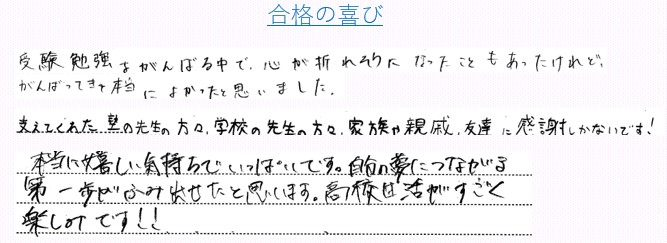 合格の喜び
受験勉強をがんばる中で、心が折れそうになったこともあったけれど、
がんばってきて本当によかったと思いました。
支えてくれた塾の先生の方々、学校の先生の方々、家族や親戚、友達に感謝しかないです！
本当に嬉しい気持ちでいっぱいです。自分の夢につながる
第一歩がふみ出せたと思います。高校生活がすごく
楽しみです！！